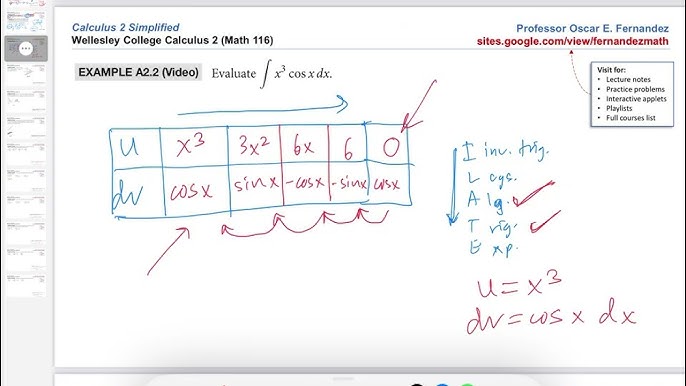 Calculus 2 Simplified
Wellesley College Calculus 2 (Math 116)
Professor Oscar E. Fernandez
sites.google.com/view/fernandezmath
EXAMPLE A2.2 (Video) Evaluate ∫ x³ cos x dx.
Visit for:
• Lecture notes
• Practice problems
• Interactive applets
• Playlists
• Full courses list
u x³ 3x² 6x 6 0
dv cosx sinx -cosx -sinx cosx
I inv. trig.
L ogs.
A lg.
T rig.
E xp.
u = x³
dv = cos x dx